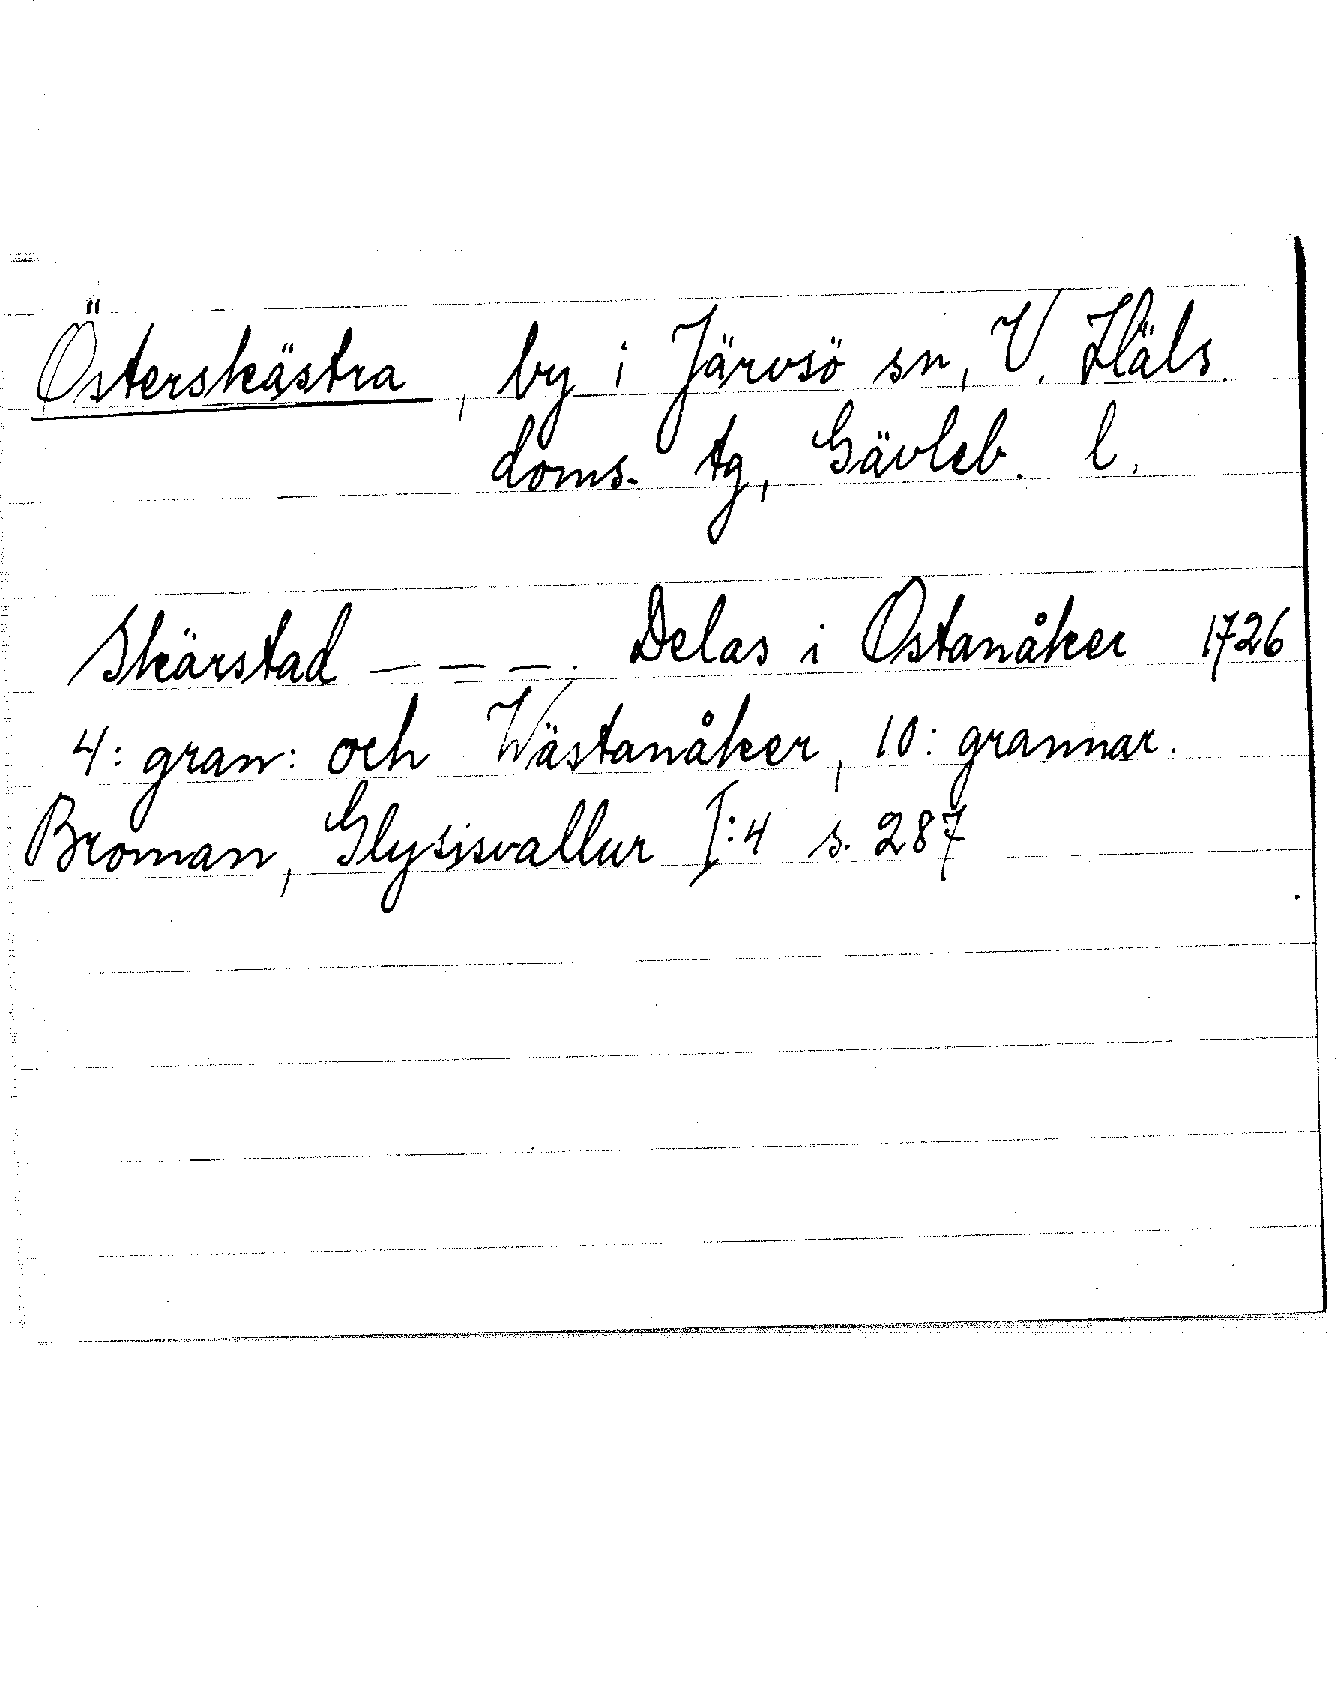 Österskästra, by i Järvsö sn, V. Häls.
doms. tg, Gävleb. l.
Skärstad – – –. Delas i Ostanåker 1726
4: gran: och Wästanåker, 10: grannar.
Broman, Glysisvallur I:4 s. 287